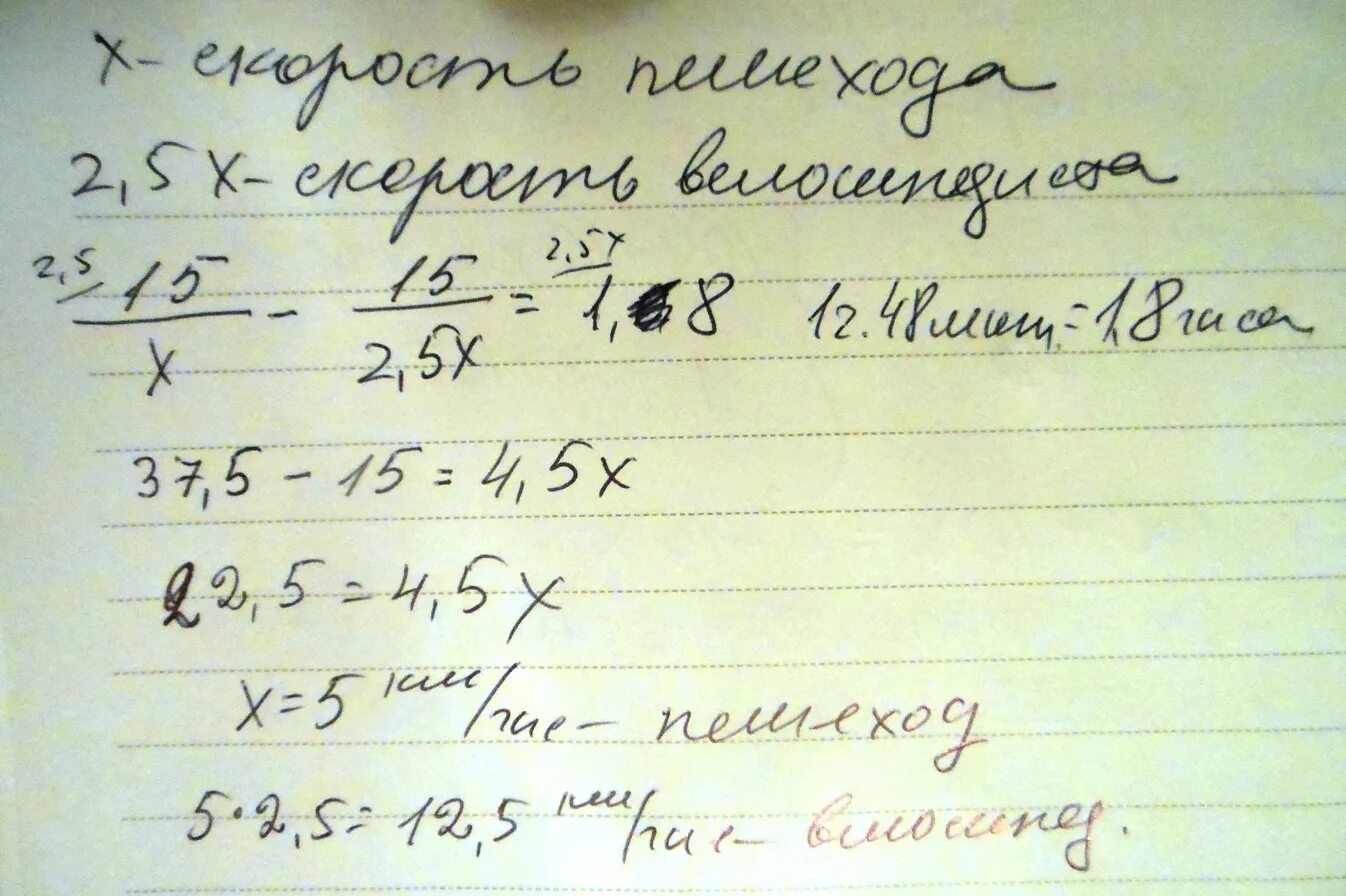 x - скорость пешехода
2,5x - скорость велосипедиста
2,5/ 15/x - 15/2,5x = 2,5x/ 1,8 1ч.48мин = 1,8 часа
37,5 - 15 = 4,5x
22,5 = 4,5x
x = 5 км/час - пешеход
5·2,5 = 12,5 км/час - велосипед.